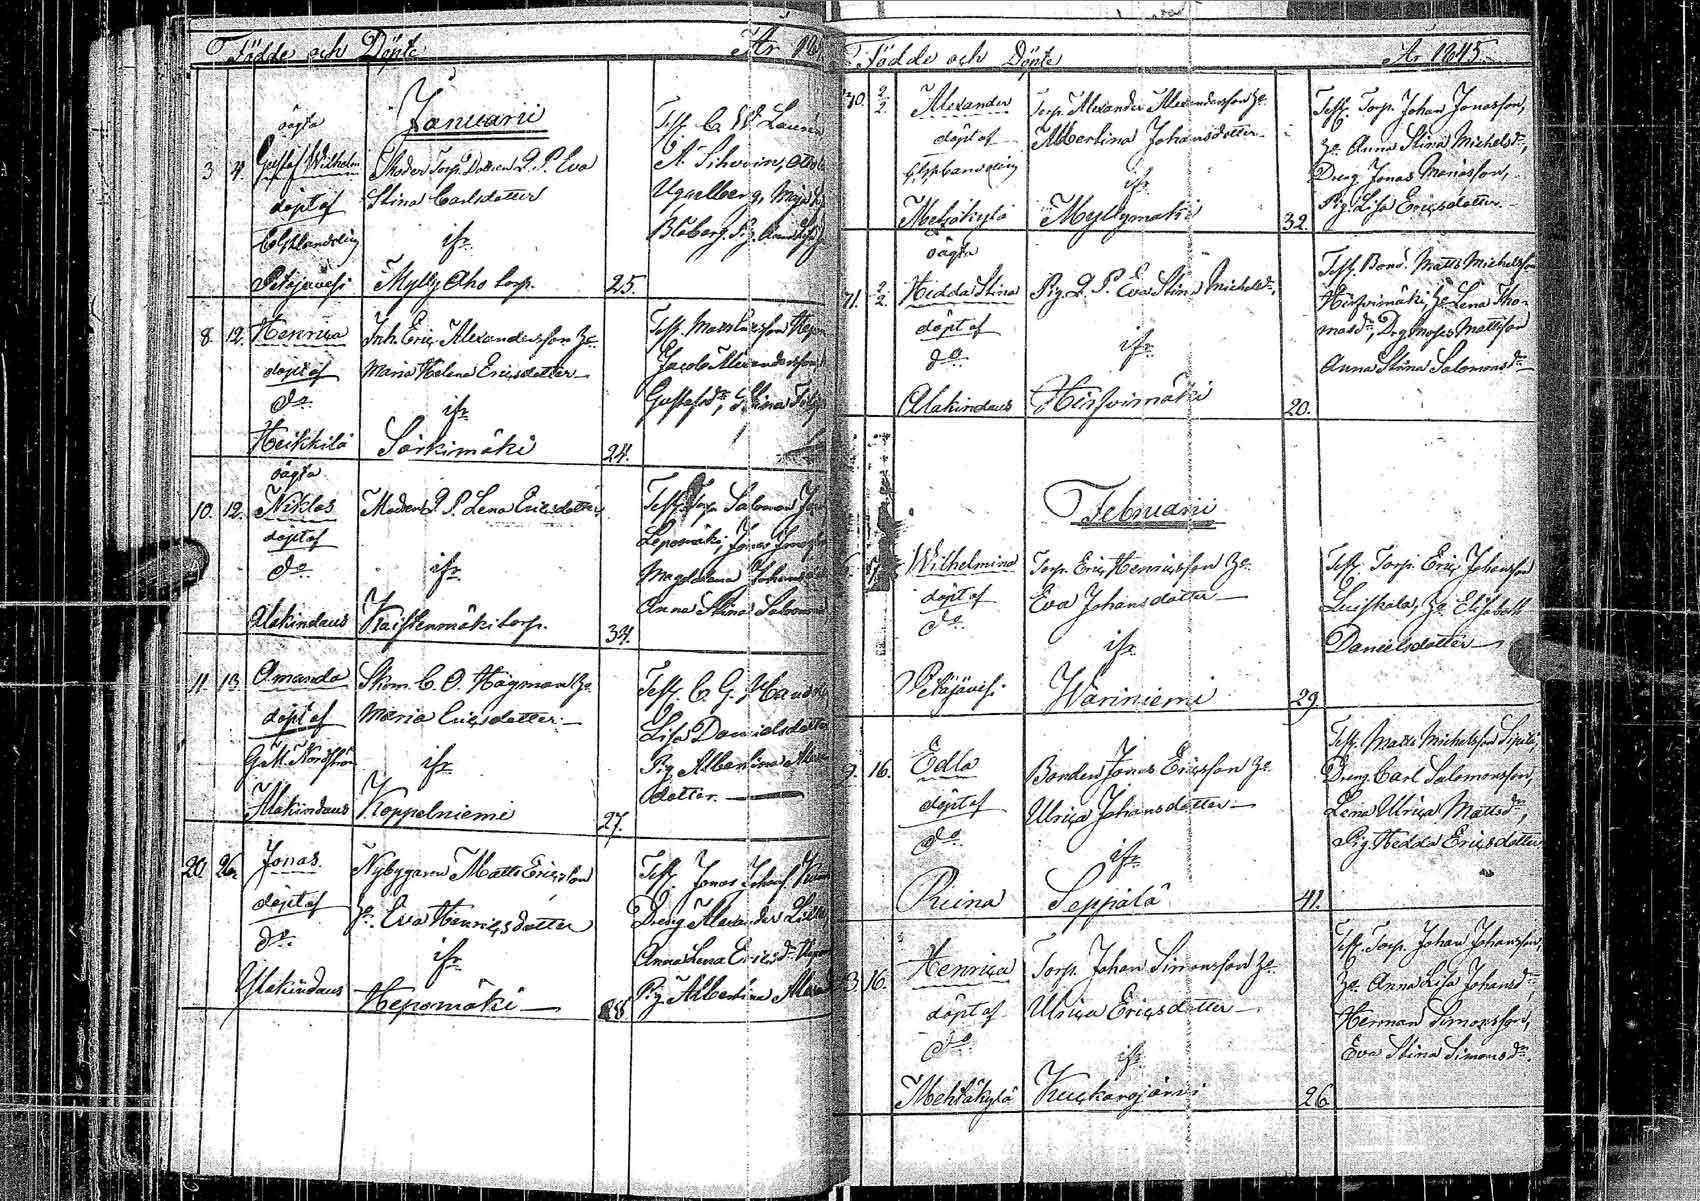 Födde och Döpte
År 18
Januarii
oägta
3 4. Gustaf Wilhelm
döpt af
Petäjävesi
Moder Torp. Dottren Q. P. Eva
Stina Carlsdotter
ifr.
Mylly Aho torp.
25.
Test. C. W. Laurén
8. 12. Henrica
döpt af
do
Heikkilä
Inh. Eric Alexandersson h.
Maria Helena Ericsdotter
ifr.
Särkimäki
24.
Jacob Alexandersson
oägta
10. 12. Niklas
döpt af
do
Alakindaus
Modern Q. P. Lena Ericsdotter
ifr.
Kaistenmäki torp.
34.
Test. Torp. Salomon
Lepomäki, Jonas
Magdalena Johansd
Anna Stina Salomons
11. 13. Amanda
döpt af
G. M. Nordström
Alakindaus
Skom. C. O. Hägman h.
Maria Ericsdotter.
ifr.
Koppelniemi
27.
Test. C. G.
Lisa Danielsdotter
Pig. Albertina
dotter.
20 26. Jonas
döpt af
do
Alakindaus
Nybyggaren Matts Ericsson
h. Eva Henricsdotter
ifr.
Hepomäki
28.
Test. Jonas Johans
Dreng Alexander
Anna Lena Ericsdr
Pig. Albertina
Födde och Döpte
År 1845.
30. 2/2 Alexander
döpt af
Metsäkylä
Torp. Alexander Alexandersson h.
Albertina Johansdotter
ifr.
Myllymäki
32.
Test. Torp. Johan Jonasson,
h. Anna Stina Michelsdr,
Dreng Jonas
Pig. Lisa Ericsdotter.
oägta
31. 2/2 Hedda Stina
döpt af
do
Alakindaus
Pig. Q. P. Eva Stina Michelsdr,
ifr.
Hirsvimäki
20.
Test. Bond. Matts Michelsson
Hirsvimäki, h. Lena Tho-
masdr, Dr. Moses Mattsson
Anna Stina Salomonsdr
Februarii
Wilhelmina
döpt af
do
Petäjävesi
Torp. Eric Henricsson h.
Eva Johansdotter
ifr.
Wariniemi
29.
Test. Torp. Eric Johansson
h. Elisabeth
Danielsdotter
9. 16. Edla
döpt af
do
Puina
Bonden Jonas Ericsson h.
Ulrica Johansdotter
ifr.
Seppälä
41.
Test. Matts Michelsson
Dreng Carl Salomonsson,
Lena Ulrica Mattsdr,
Pig. Hedda Ericsdotter
3 16. Henrica
döpt af
do
Metsäkylä
Torp. Johan Simonsson h.
Ulrica Ericsdotter
ifr.
Kuckarojärvi
26
Test. Torp. Johan Johansson,
h. Anna Lisa Johansdr,
Herman Simonsson,
Eva Stina Simonsdr.